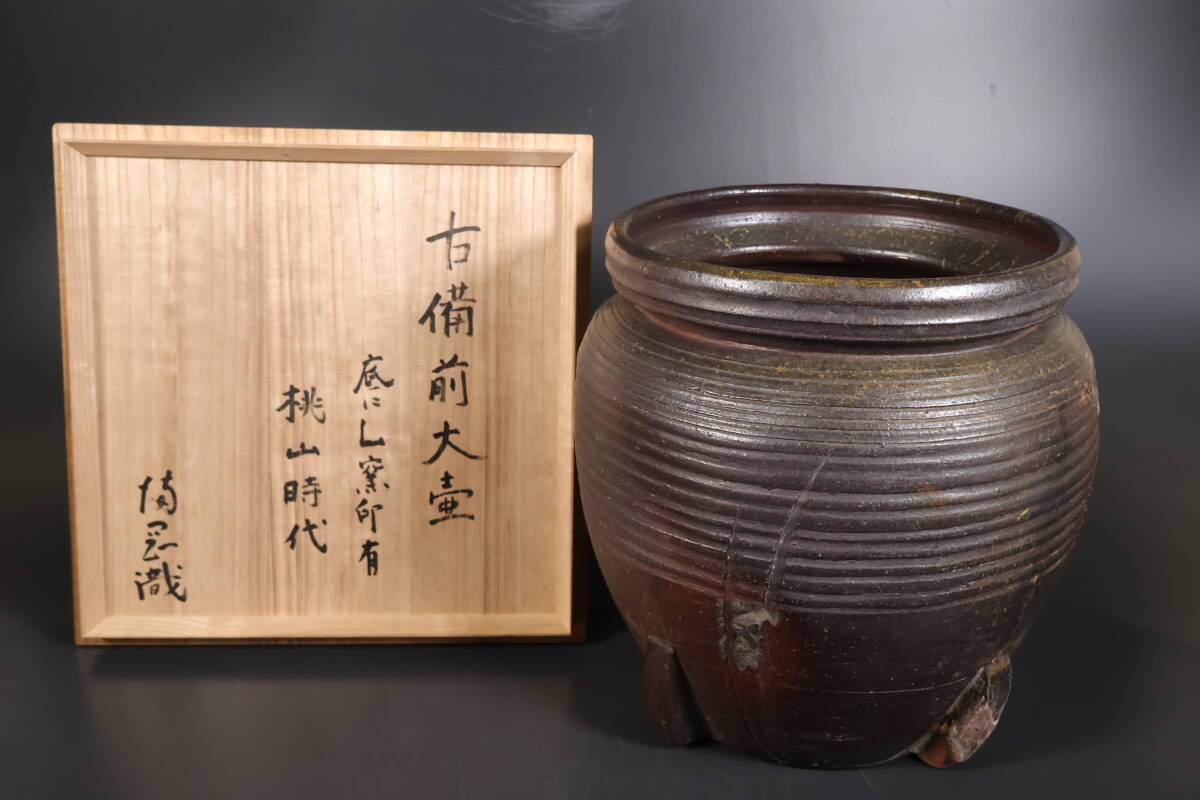 古備前大壷
底にL窯印有
桃山時代
識